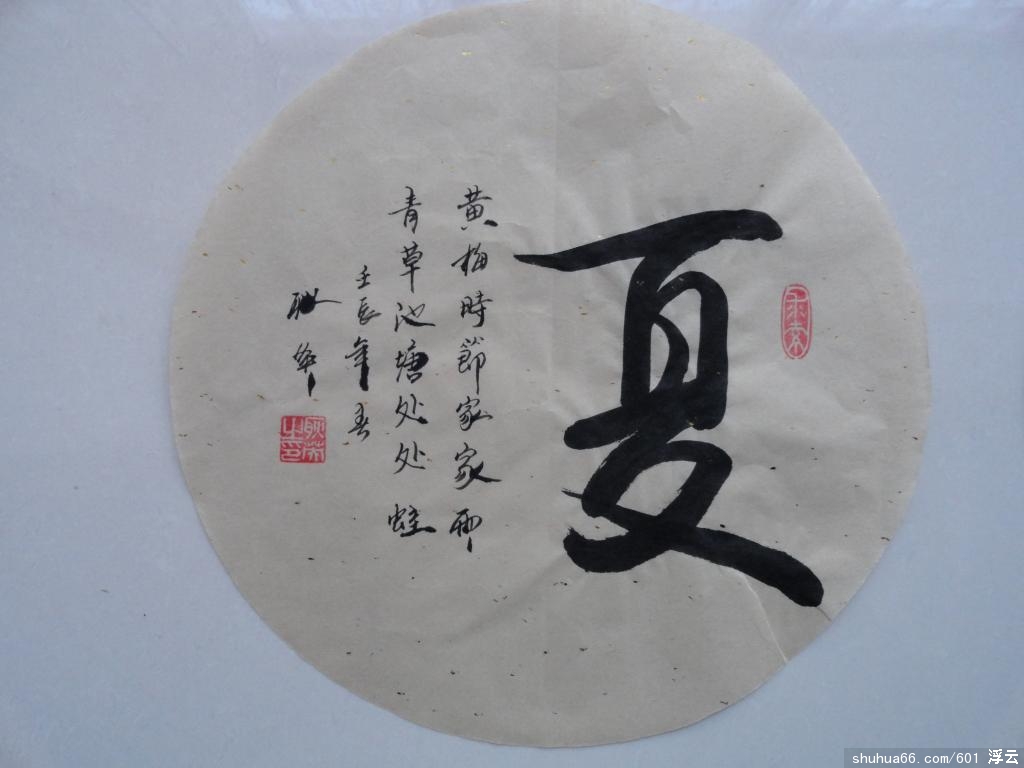 夏
黄梅時節家家雨
青草池塘处处蛙
壬辰年春
耿荣
耿荣之印
shuhua66.com/601 浮云